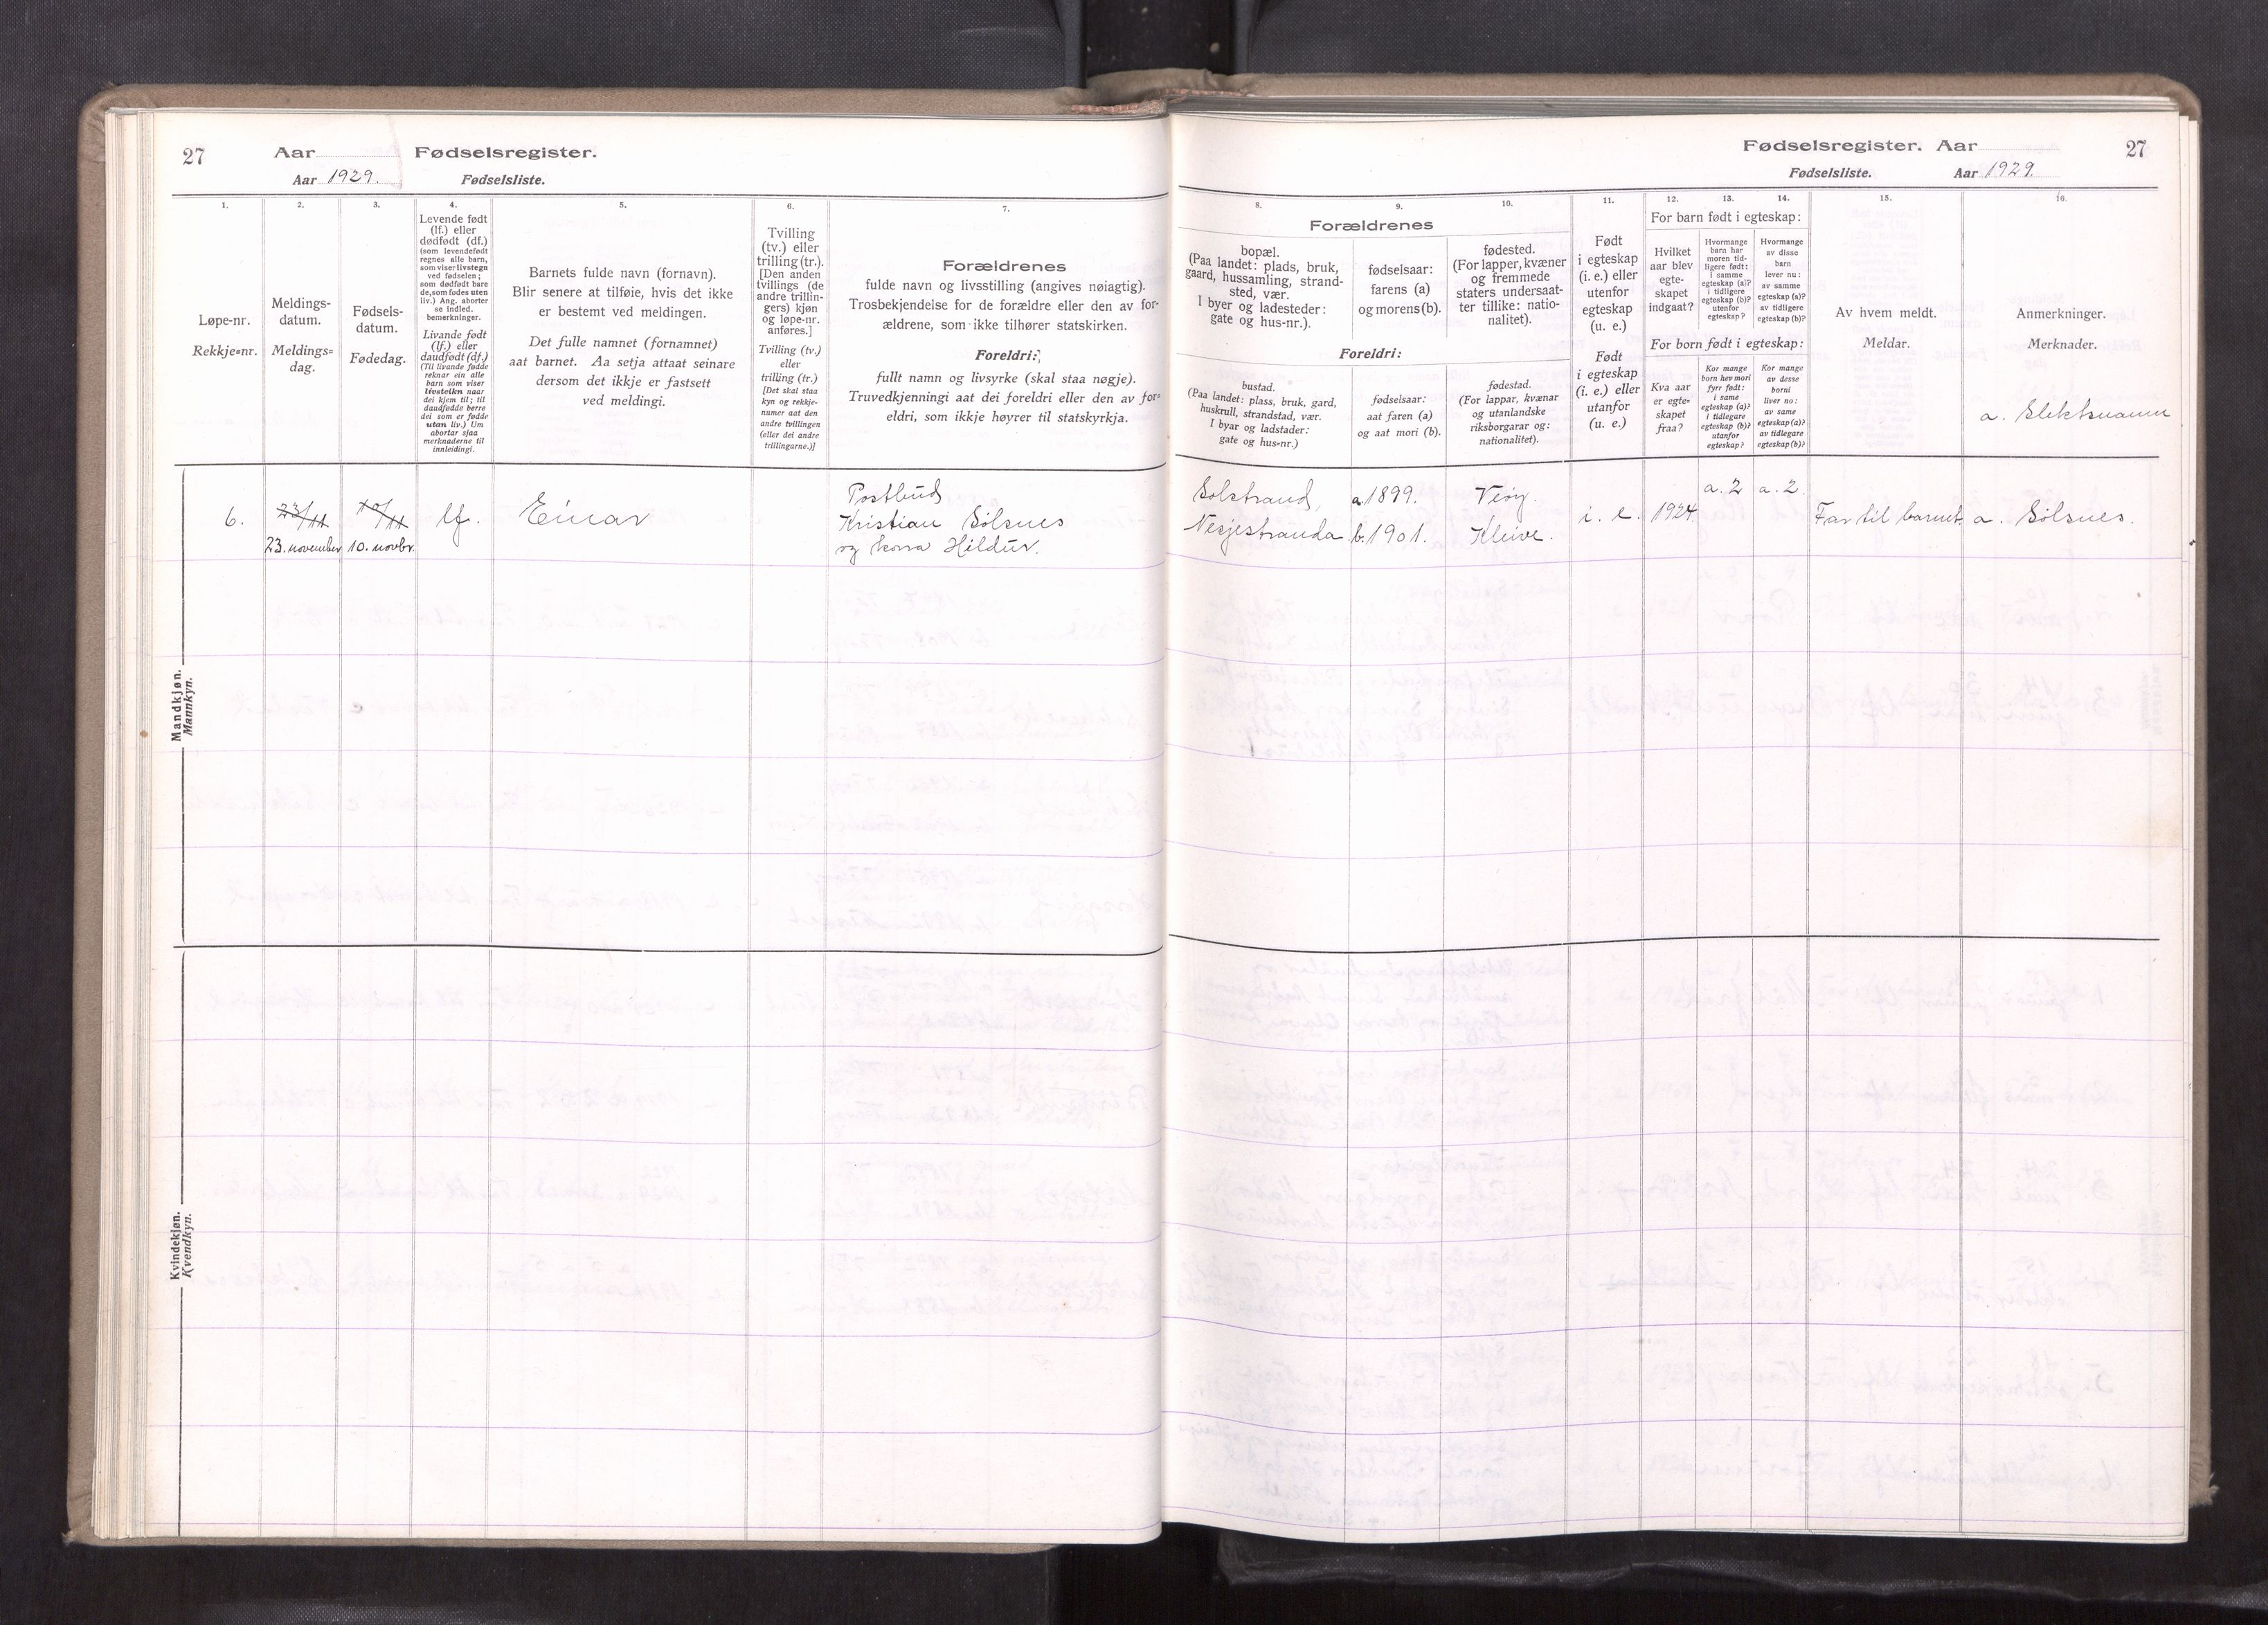 27
Aar
Fødselsregister.
Aar 1929.
Fødselsliste.
1.
2.
3.
4.
5.
6.
7.
Løpe-nr.
Rekkje=nr.
Meldings-
datum.
Meldings=
dag.
Fødsels-
datum.
Fødedag.
Levende født
(lf.) eller
dødfødt (df.)
(som levendefødt
regnes alle barn,
som viser livstegn
ved fødselen;
som dødfødt bare
de, som fødes uten
liv.) Ang. aborter
se indled.
bemerkninger.
Livande født
(lf.) eller
daudfødt (df.)
(Til livande fødde
reknar ein alle
barn som viser
livsteikn naar
dei kjem til; til
daudfødde berre
dei som er fødde
utan liv.) Um
abortar sjaa
merknaderne til
innleidingi.
Barnets fulde navn (fornavn).
Blir senere at tilføie, hvis det ikke
er bestemt ved meldingen.
Det fulle namnet (fornamnet)
aat barnet. Aa setja attaat seinare
dersom det ikkje er fastsett
ved meldingi.
Tvilling
(tv.) eller
trilling (tr.).
[Den anden
tvillings (de
andre trillin-
gers) kjøn
og løpe-nr.
anføres.]
Tvilling (tv.)
eller
trilling (tr.)
[Det skal staa
kyn og rekkje-
numer aat den
andre tvillingen
(eller dei andre
trillingarne.)]
Forældrenes
fulde navn og livsstilling (angives nøiagtig).
Trosbekjendelse for de forældre eller den av for-
ældrene, som ikke tilhører statskirken.
Foreldri:
fullt namn og livsyrke (skal staa nøgje).
Truvedkjenningi aat dei foreldri eller den av for=
eldri, som ikkje høyrer til statskyrkja.
Mandkjøn.
Mannkyn.
6.
23/11
23. november
10/11
10. novbr.
lf.
Einar
Postbud
Kristian Sølsnes
og kona Hildur.
Kvindekjøn.
Kvendkyn.
Fødselsregister. Aar
27
Fødselsliste.
Aar 1929.
8.
9.
10.
11.
12.
13.
14.
15.
16.
Forældrenes
bopæl.
(Paa landet: plads, bruk,
gaard, hussamling, strand-
sted, vær.
I byer og ladesteder:
gate og hus-nr.).
fødselsaar:
farens (a)
og morens (b).
fødested.
(For lapper, kvæner
og fremmede
staters undersaat-
ter tillike: natio-
nalitet).
Foreldri:
bustad.
(Paa landet: plass, bruk, gard,
huskrull, strandstad, vær.
I byar og ladstader:
gate og hus=nr.)
fødselsaar:
aat faren (a)
og aat mori (b).
fødestad.
(For lappar, kvænar
og utanlandske
riksborgarar og:
nationalitet).
Født
i egteskap
(i. e.) eller
utenfor
egteskap
(u. e.)
Født
i egteskap
(i. e.) eller
utanfor
(u. e.)
For barn født i egteskap:
Hvilket
aar blev
egte-
skapet
indgaat?
Hvormange
barn har
moren tid-
ligere født:
i samme
egteskap (a)?
i tidligere
egteskap (b)?
utenfor
egteskap?
Hvormange
av disse
barn
lever nu:
av samme
egteskap (a)?
av tidligere
egteskap (b)?
For born født i egteskap:
Kva aar
er egte-
skapet
fraa?
Kor mange
born hev mori
fyrr født:
i same
egteskap (a)?
i tidlegare
egteskap (b)?
utanfor
egteskap?
Kor mange
av desse
borni
liver no:
av same
egteskap (a)?
av tidlegare
egteskap (b)?
Av hvem meldt.
Meldar.
Anmerkninger.
Merknader.
a. Slektsnamn
Solstrand,
Nesjestranda
a. 1899.
b. 1901.
Veøy.
Kleive.
i. e.
1924
a. 2
a. 2.
Far til barnet
a. Sølsnes.